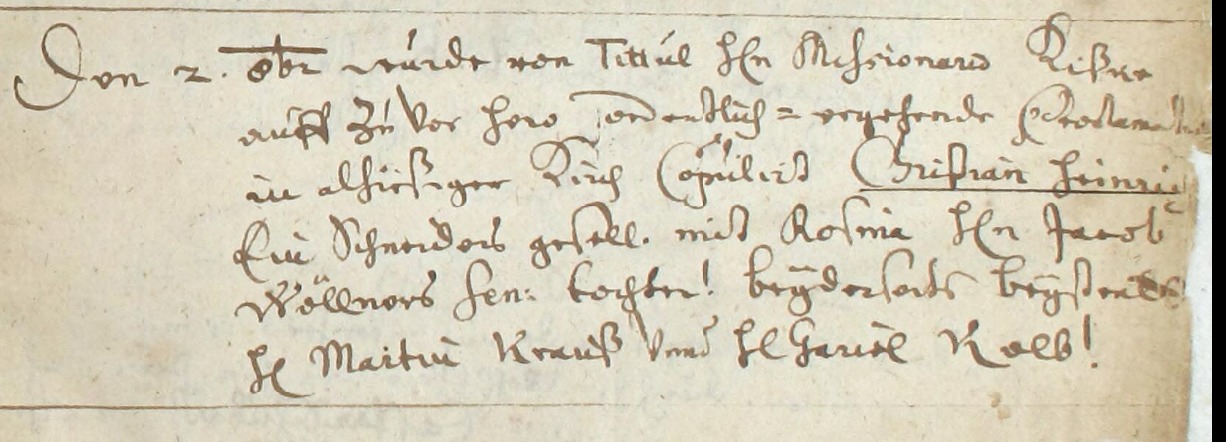 Den 2. 8br wurde von Tittul H̄n Missionario
auff zu vor hero ordentlich = ergehende Proclamation
in alhiesiger Kirch Copulirt Christian Heinrich
Ein Schneiders gesell. mit Rosina H̄n Jacob
Wöllners sen: tochter! beÿderseits beÿständ
H̄ Martin Krauß Vnd H̄ Kolb!